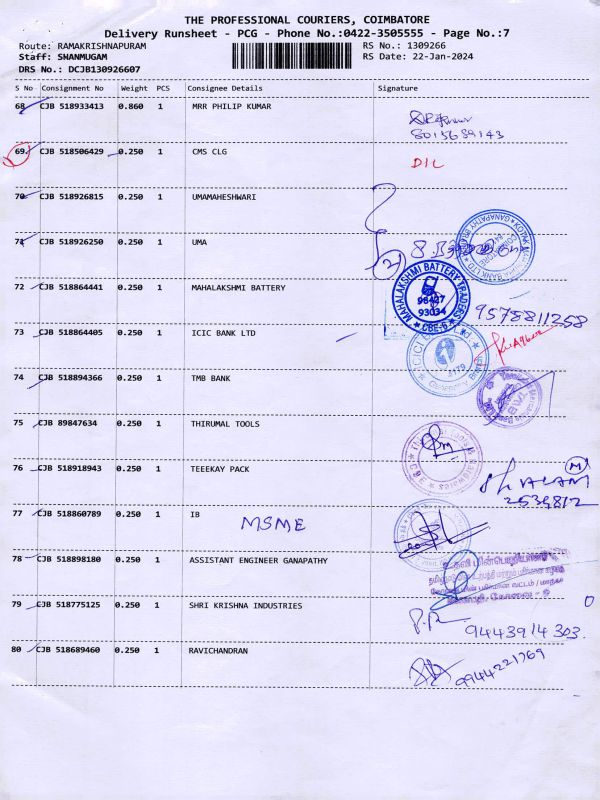 THE PROFESSIONAL COURIERS, COIMBATORE
Delivery Runsheet - PCG - Phone No.:0422-3505555 - Page No.:7
Route: RAMAKRISHNAPURAM RS No.: 1309266
Staff: SHANMUGAM RS Date: 22-Jan-2024
DRS No.: DCJB130926607
S No Consignment No Weight PCS Consignee Details Signature
68 CJB 518933413 0.860 1 MRR PHILIP KUMAR
8015689143
69 CJB 518506429 0.250 1 CMS CLG DIL
70 CJB 518926815 0.250 1 UMAMAHESHWARI
71 CJB 518926250 0.250 1 UMA
21
72 CJB 518864441 0.250 1 MAHALAKSHMI BATTERY
MAHALAKSHMI BATTERY TRADERS
98427
93034
CBE-6
9575811258
73 CJB 518864405 0.250 1 ICIC BANK LTD
74 CJB 518894366 0.250 1 TMB BANK
TMB
75 CJB 89847634 0.250 1 THIRUMAL TOOLS
76 CJB 518918943 0.250 1 TEEEKAY PACK
M
77 CJB 518860789 0.250 1 IB
MSME
78 CJB 518898180 0.250 1 ASSISTANT ENGINEER GANAPATHY
79 CJB 518775125 0.250 1 SHRI KRISHNA INDUSTRIES
9443914303
80 CJB 518689460 0.250 1 RAVICHANDRAN
9944221769